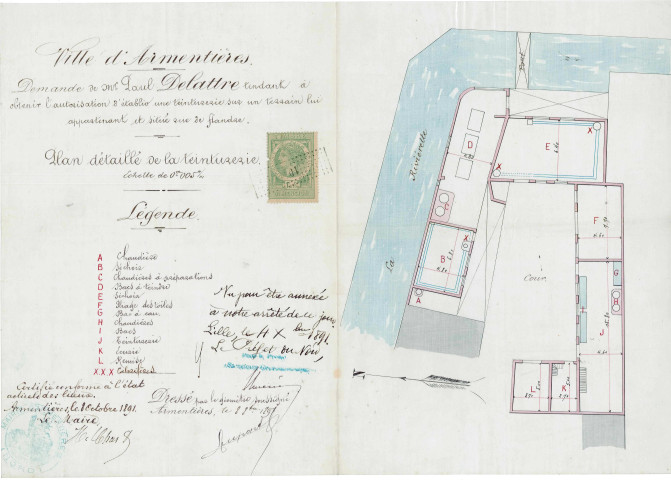 Ville d'Armentières.
Demande de Mr Paul Delattre tendant à
obtenir l'autorisation d'établir une teinturerie sur un terrain lui
appartenant et situé rue de flandre.
Plan détaillé de la teinturerie.
Echelle de 0m005
Légende.
A Chaudière
B Séchoir
C Chaudières à préparations
D Bacs à teindre
E Séchoir
F Pliage des toiles
G Bac à eau
H Chaudières
I Bacs
J Teinturerie
K Ecurie
L Remise
X X X Calorifères
Certifié conforme à l'état
actuel des lieux.
Armentières, le 8 Octobre 1891.
Le Maire
Vu pour être annexé
à notre arrêté de ce jour
Lille, le 1891.
Le Préfet du Nord,
Dressé par le géomètre soussigné
Armentières, le
La Rivièrette
Pont
D
E
X
X
C
B
X
A
F
G
H
J
I
Cour
L
K